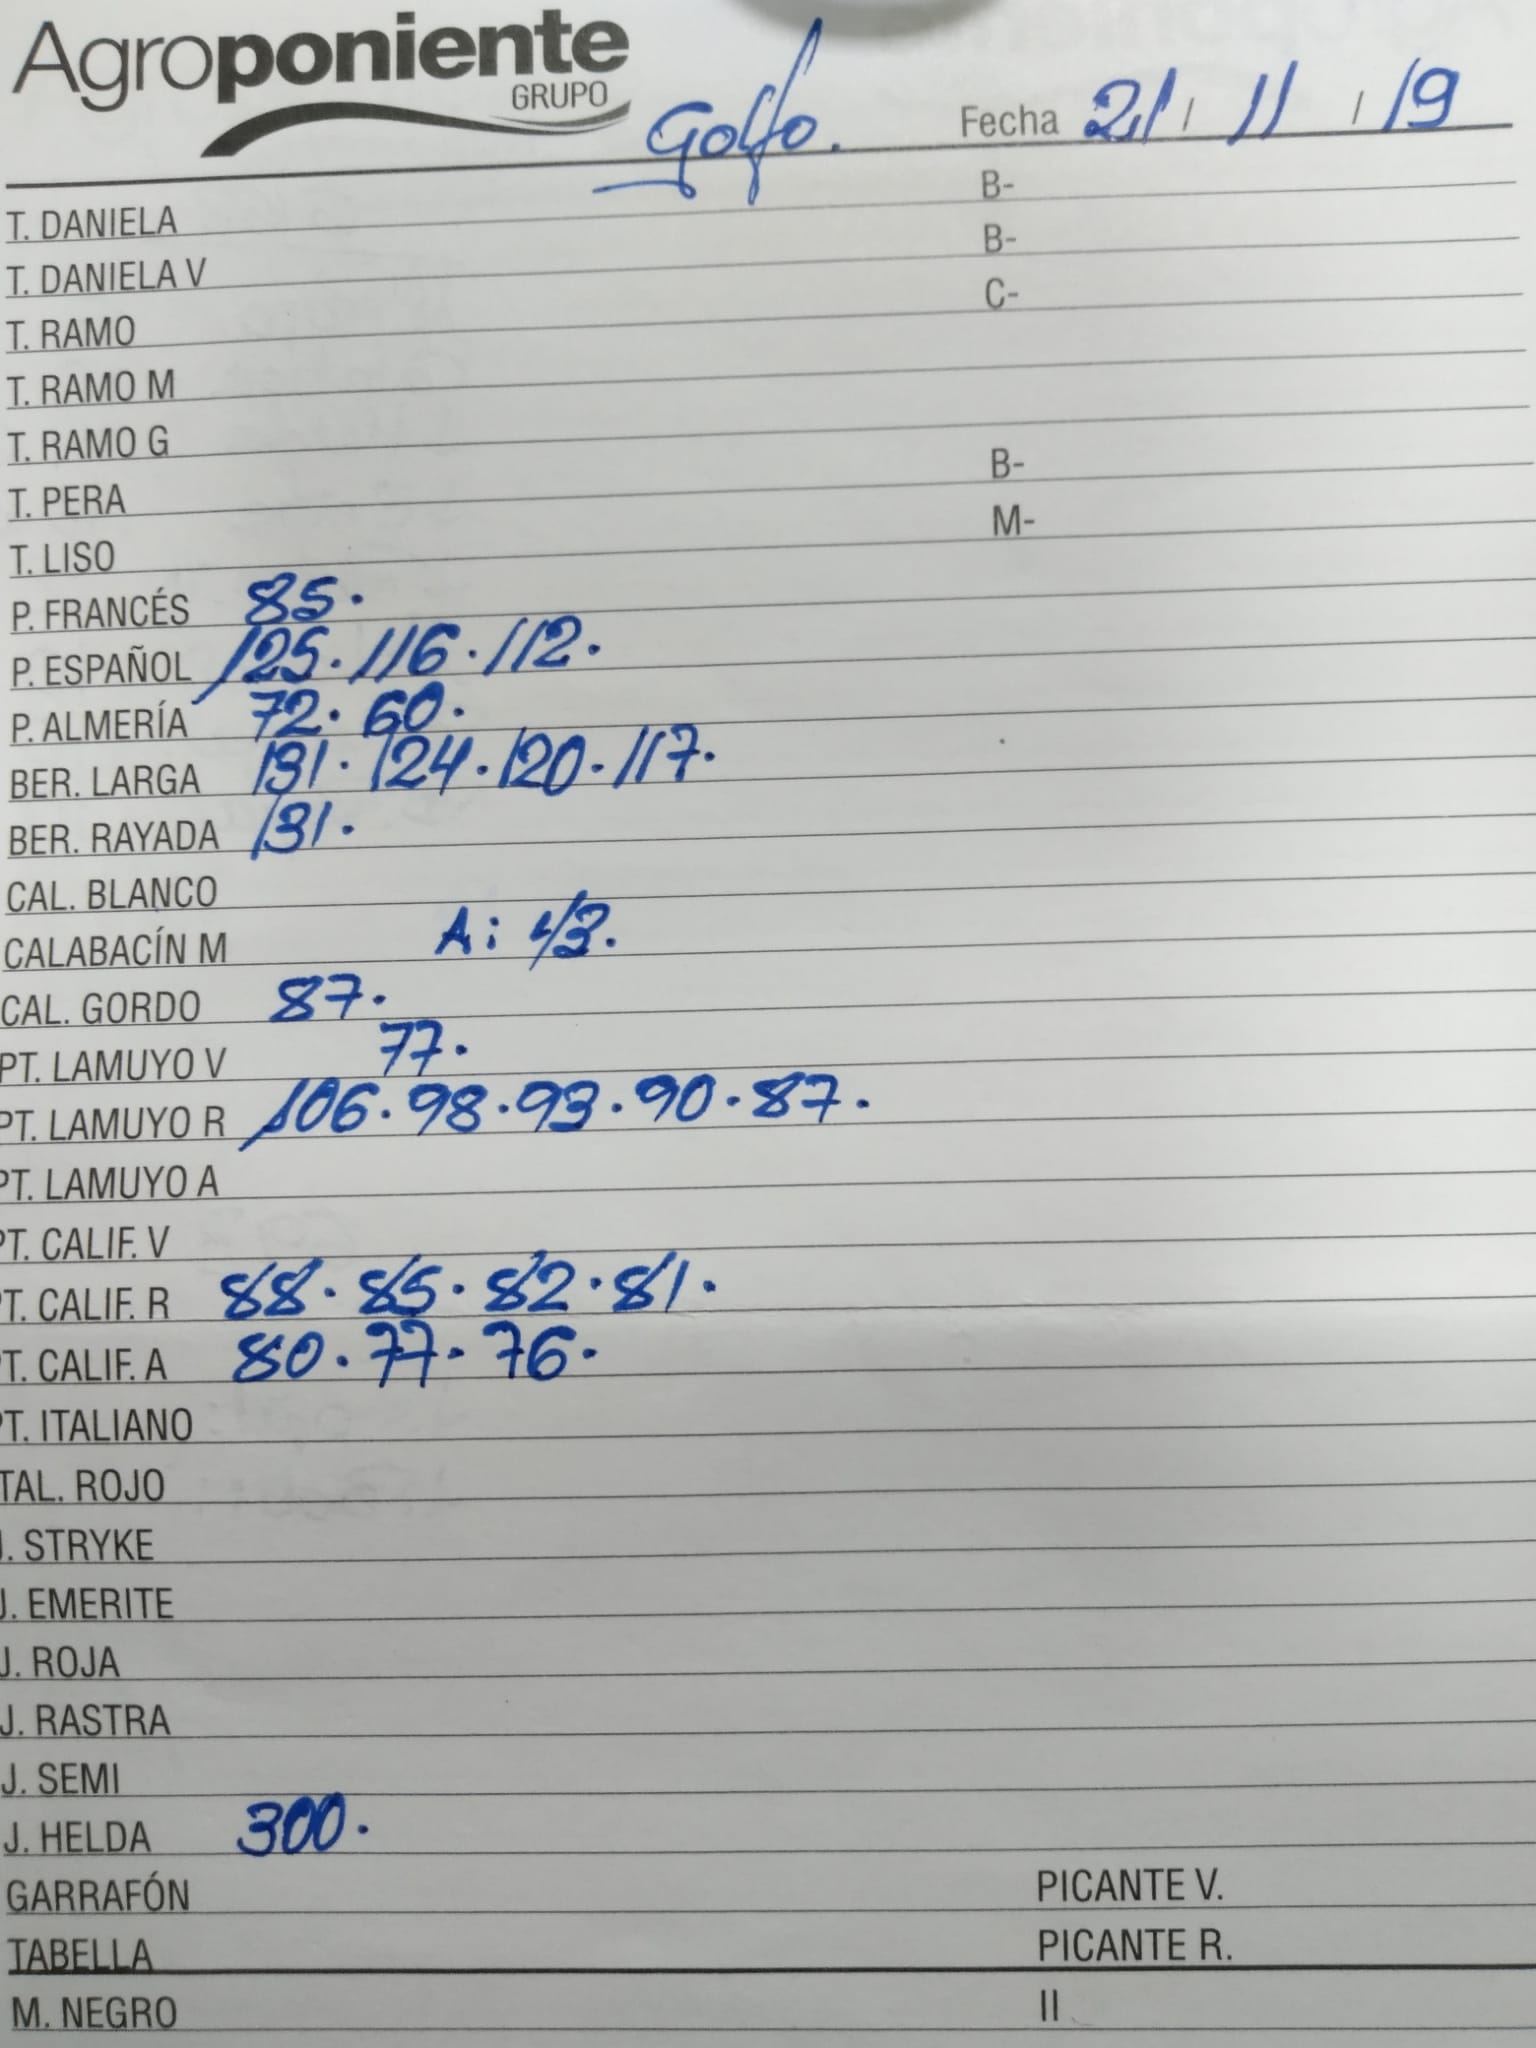 Agroponiente
GRUPO
Golfo. Fecha 21 / 11 / 19
T. DANIELA B-
T. DANIELA V B-
T. RAMO C-
T. RAMO M
T. RAMO G
T. PERA B-
T. LISO M-
P. FRANCÉS 85.
P. ESPAÑOL 125. 116. 112.
P. ALMERÍA 72. 60.
BER. LARGA 131. 124. 120. 117.
BER. RAYADA 131.
CAL. BLANCO
CALABACÍN M A: 43.
CAL. GORDO 87.
PT. LAMUYO V 77.
PT. LAMUYO R 106. 98. 93. 90. 87.
PT. LAMUYO A
PT. CALIF. V
T. CALIF. R 88. 85. 82. 81.
T. CALIF. A 80. 77. 76.
PT. ITALIANO
TAL. ROJO
J. STRYKE
J. EMERITE
J. ROJA
J. RASTRA
J. SEMI
J. HELDA 300.
GARRAFÓN PICANTE V.
TABELLA PICANTE R.
M. NEGRO II